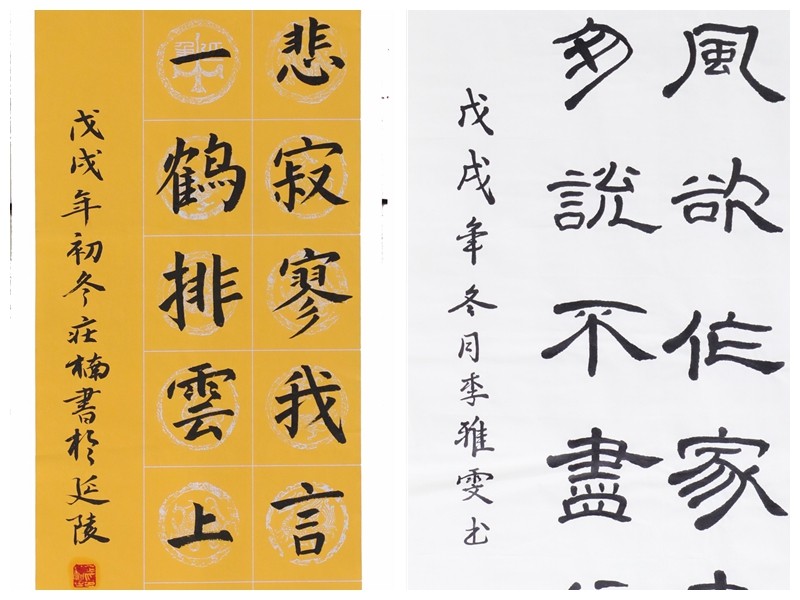 悲寂寥我言
一鶴排雲上
戊戌年初冬莊楠書於延陵
風欲作家
多說不盡
戊戌年冬月李雅雯书